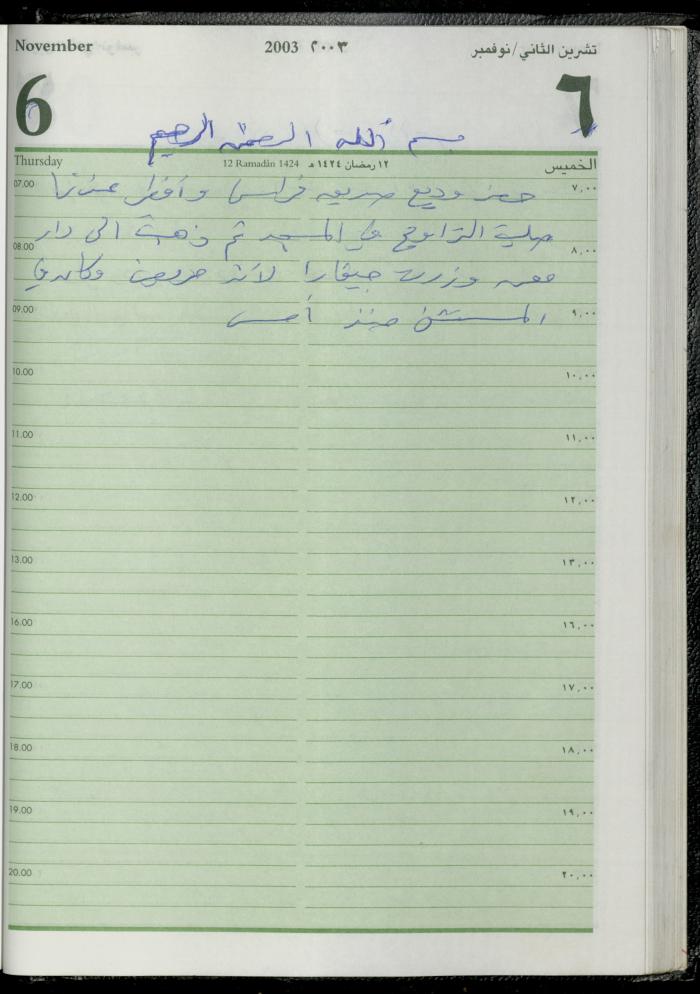 November 2003 ٢٠٠٣ تشرين الثاني/نوفمبر
6 ٦
بسم الله الرحمن الرحيم
Thursday 12 Ramadân 1424 ١٢ رمضان ١٤٢٤ هـ الخميس
07.00 ٧,٠٠
حضر وديع صديق فراس وأفطر عندنا
صليت التراويح في المسجد ثم ذهبت الى دار
08.00 ٨,٠٠
وزرت جيفارا لأنه مريض وكان في
09.00 ٩,٠٠
المستشفى منذ أمس
10.00 ١٠,٠٠
11.00 ١١,٠٠
12.00 ١٢,٠٠
13.00 ١٣,٠٠
16.00 ١٦,٠٠
17.00 ١٧,٠٠
18.00 ١٨,٠٠
19.00 ١٩,٠٠
20.00 ٢٠,٠٠